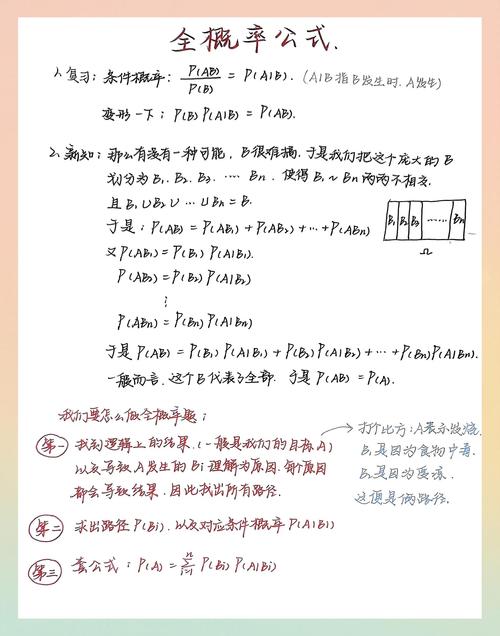 全概率公式.
1. 复习: 条件概率: P(AB)/P(B) = P(A|B). (A|B 指B发生时, A发生)
变形一下: P(B)P(A|B) = P(AB).
2. 新知: 那么有没有一种可能, B很难搞, 于是我们把这个庞大的B
划分为 B₁. B₂. B₃. ⋯⋯ Bn. 使得 B₁~Bn 两两不相交.
且 B₁∪B₂∪⋯∪Bn = B.
于是: P(AB) = P(AB₁) + P(AB₂) + ⋯ + P(ABn)
B₁ B₂ B₃ ⋯⋯ Bn
Ω
又 P(AB₁) = P(B₁) P(A|B₁).
P(AB₂) = P(B₂) P(A|B₂)
⋮
P(ABn) = P(Bn) P(A|Bn)
于是 P(AB) = P(B₁) P(A|B₁) + P(B₂) P(A|B₂) + ⋯ + P(Bn)P(A|Bn).
一般而言, 这个B代表了全部. 于是 P(AB) = P(A).
我们要怎么做全概率题:
第一 找到逻辑上的结果, (一般是我们的目标A)
以及导致A发生的Bi理解为原因. 每个原因
都会导致结果, 因此找出所有路径.
打个比方: A表示发烧.
B₁是因为食物中毒.
B₂是因为受凉.
这便是俩路径.
第二 求出路径 P(Bi). 以及对应条件概率 P(A|Bi)
第三 套公式: P(A) = ∑ⁿᵢ₌₁ P(Bi) P(A|Bi)